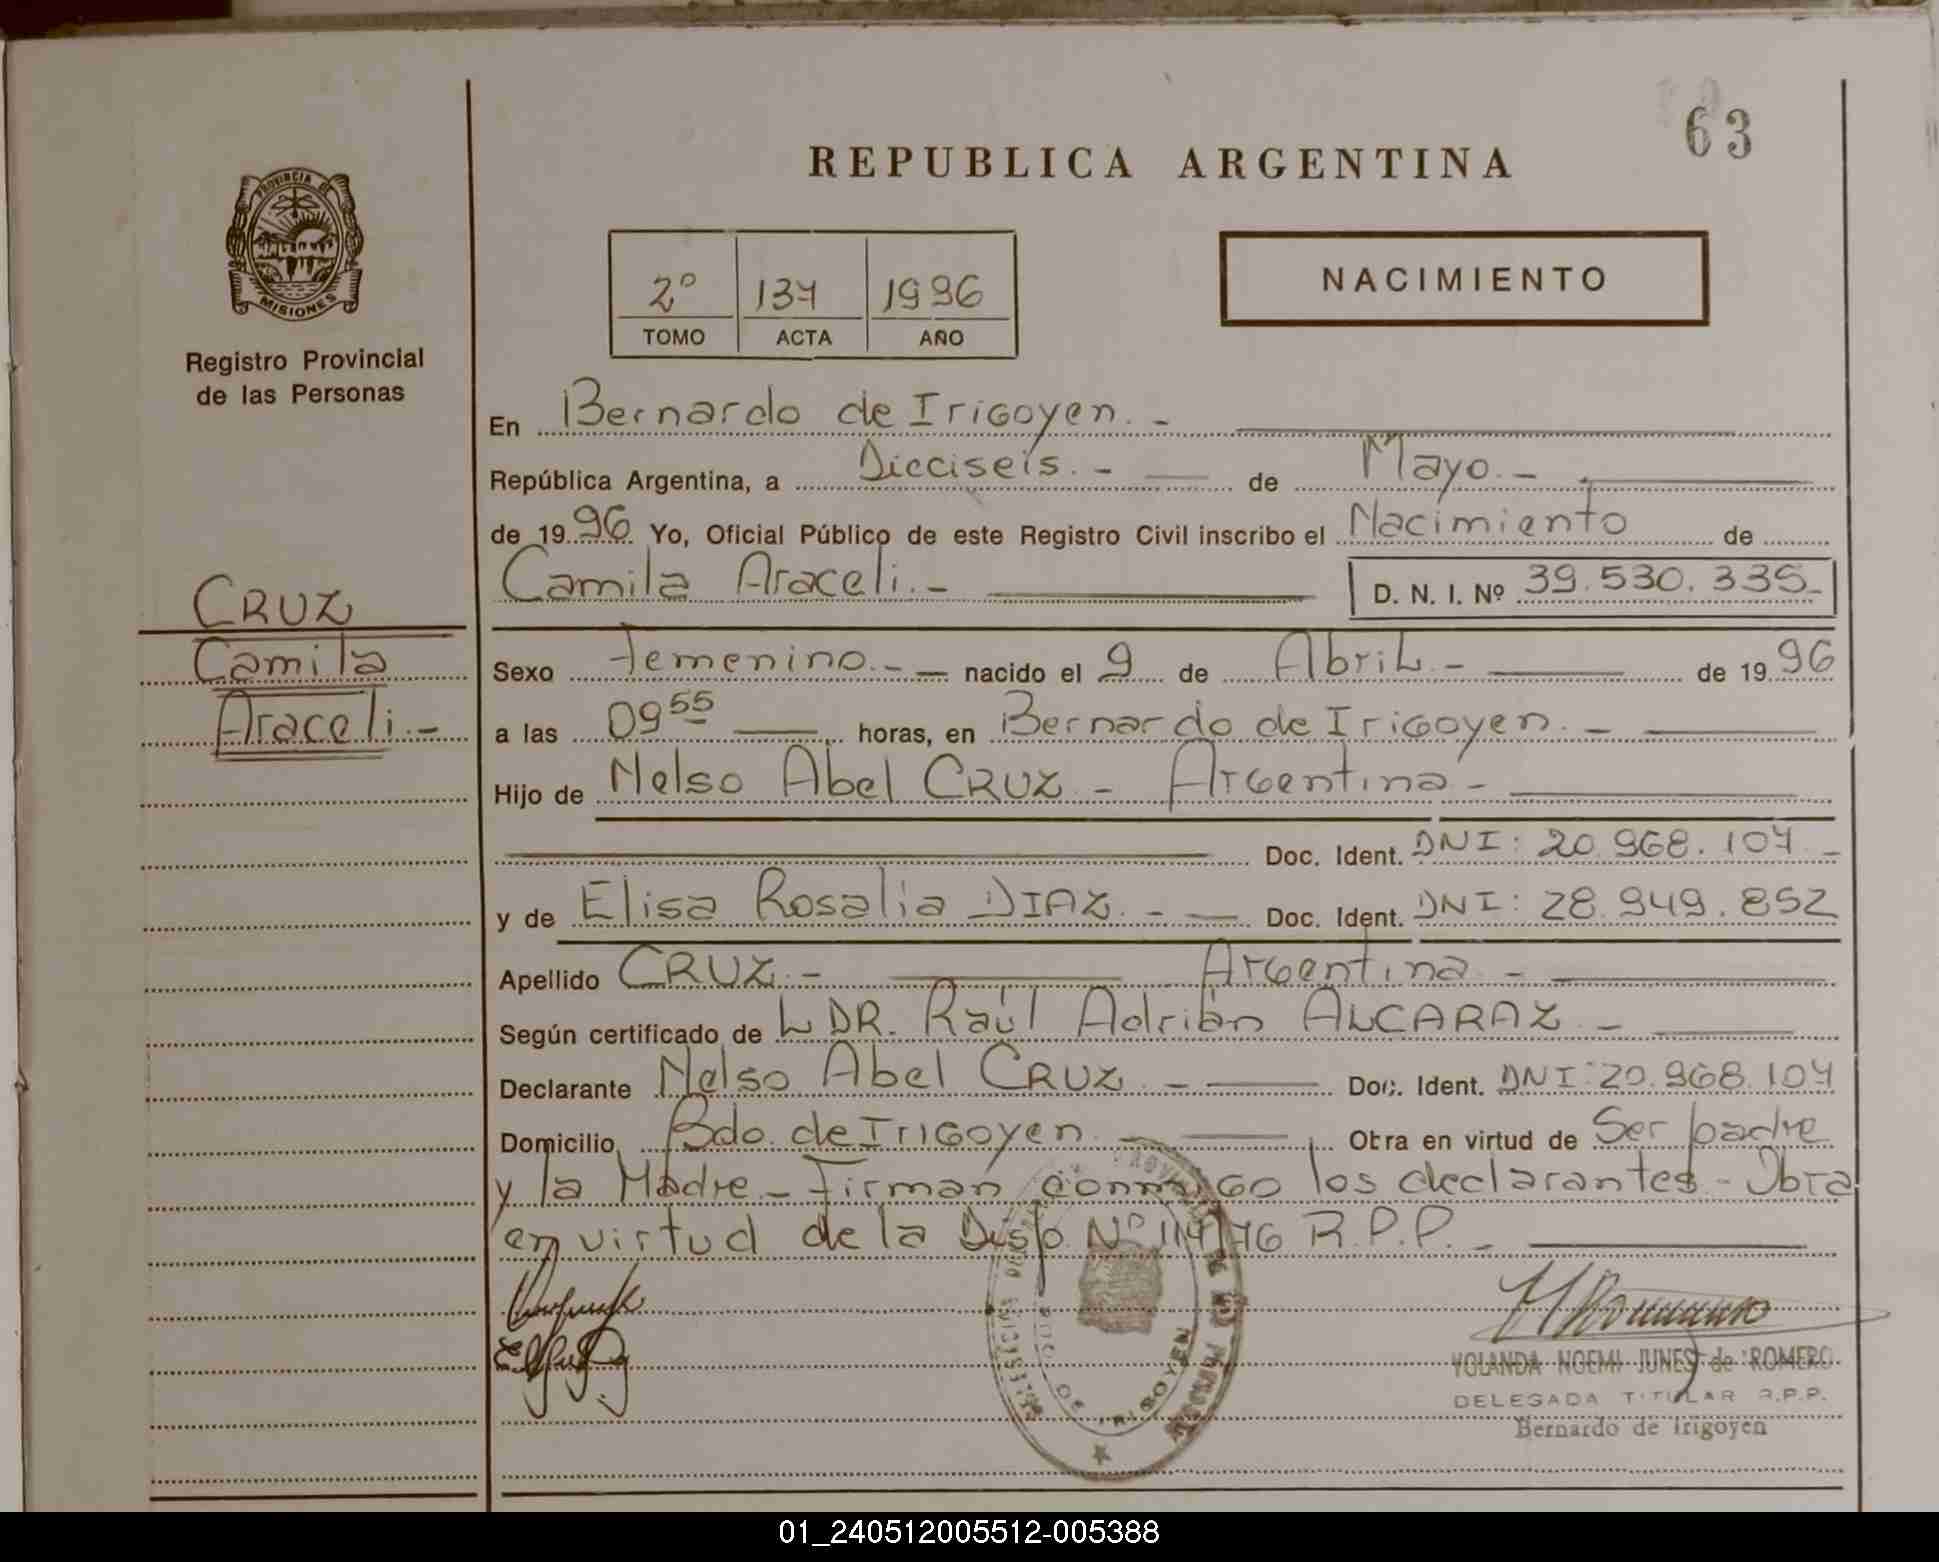 63
REPUBLICA ARGENTINA
PROVINCIA DE
MISIONES
Registro Provincial
de las Personas
2º 137 1996
TOMO ACTA AÑO
NACIMIENTO
En Bernardo de Irigoyen. -
República Argentina, a Dieciseis. - de Mayo. -
de 1996 Yo, Oficial Público de este Registro Civil inscribo el Nacimiento de
Camila Araceli. - D. N. I. Nº 39.530.335-
CRUZ
Camila
Araceli. -
Sexo Femenino. - nacido el 9 de Abril. - de 1996
a las 09 55 horas, en Bernardo de Irigoyen. -
Hijo de Nelso Abel CRUZ - Argentina -
Doc. Ident. DNI: 20.968.107 -
y de Elisa Rosalia DIAZ. - Doc. Ident. DNI: 28.949.852
Apellido CRUZ. - Argentina -
Según certificado de L DR. Raúl Adrián ALCARAZ -
Declarante Nelso Abel CRUZ. - Doc. Ident. DNI: 20.968.107
Domicilio Bdo. de Irigoyen - Otra en virtud de Ser padre
y la Madre - Firman conmigo los declarantes - Obra
en virtud de la Disp. Nº 114/76 R.P.P. -
DE IRIGOYEN
YOLANDA NOEMI JUNES de ROMERO
DELEGADA TITULAR R.P.P.
Bernardo de Irigoyen
01_240512005512-005388